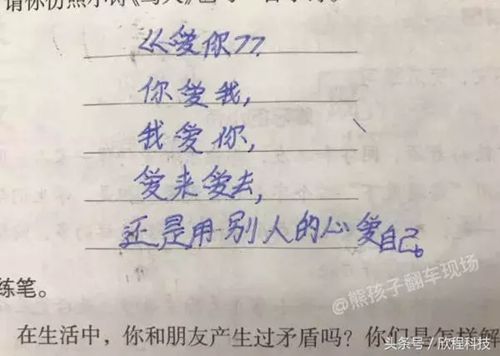 请你仿照小诗
《爱你》
你爱我，
我爱你，
爱来爱去，
还是用别人的心爱自己。
@熊孩子翻车现场
练笔。
在生活中，你和朋友产生过矛盾吗？你们是怎样解
头条号 / 欣程科技